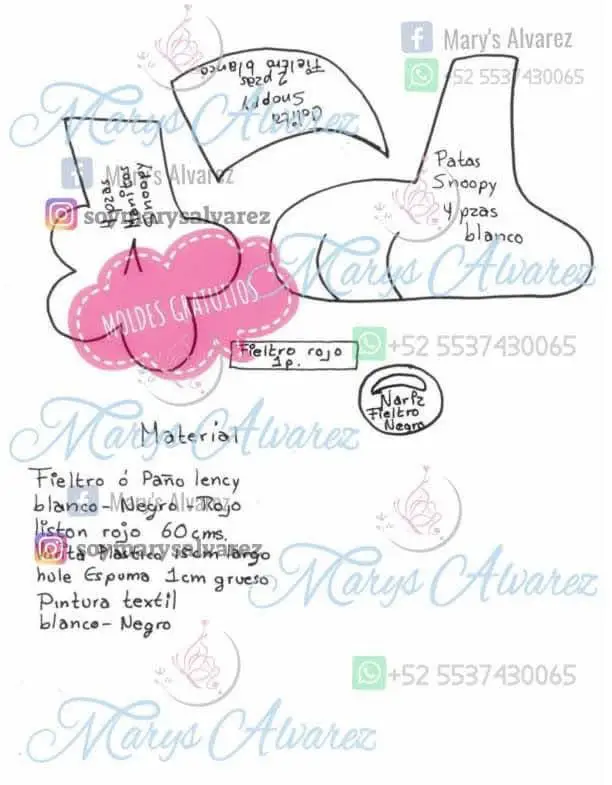 Mary's Alvarez
+52 5537430065
Colita
Snoppy
2 pzas
Fieltro blanco
Marys Alvarez
Patas
Snoopy
4 pzas
blanco
Mary's Alvarez
Snoopy
4 pzas
soymarysalvarez
Marys Alvarez
MOLDES GRATUITOS
Fieltro rojo
1p.
+52 5537430065
Nariz
Fieltro
Negro
Marys Alvarez
Material
Fieltro ó Paño lency
blanco-Negro-Rojo
Mary's Alvarez
liston rojo 60cms.
soymarysalvarez
Plastico 15cm largo
hule Espuma 1cm grueso
Marys Alvarez
Pintura textil
blanco-Negro
+52 5537430065
Marys Alvarez